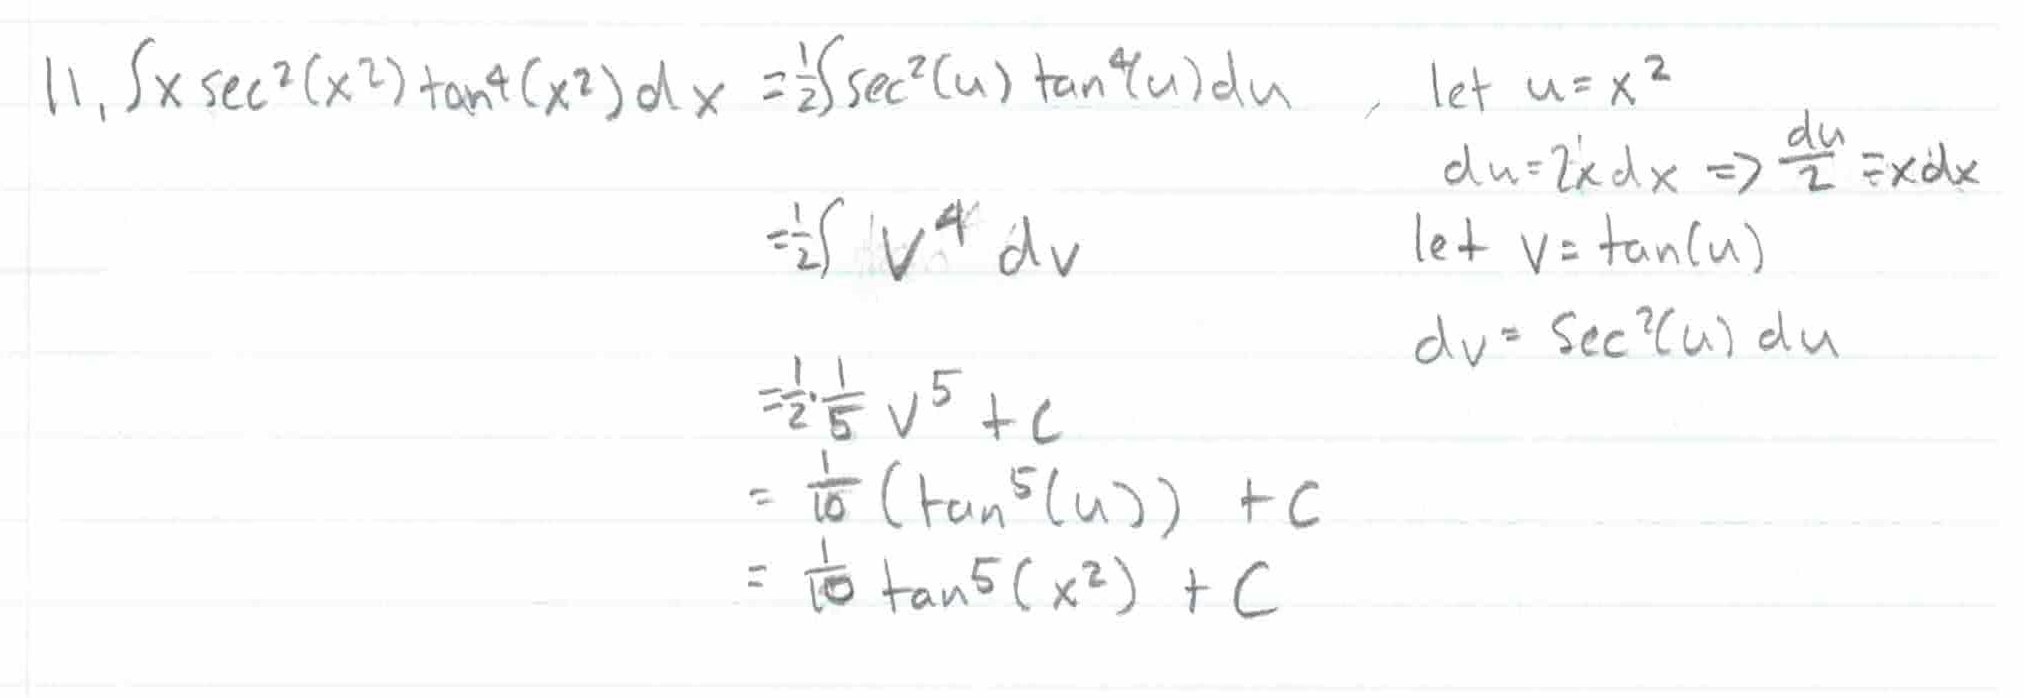 11. ∫x sec²(x²) tan⁴(x²) dx = ½∫sec²(u) tan⁴(u) du , let u = x²
du = 2x dx => du/2 = x dx
= ½∫ v⁴ dv let v = tan(u)
dv = sec²(u) du
= ½·⅕ v⁵ + C
= 1/10 (tan⁵(u)) + C
= 1/10 tan⁵(x²) + C